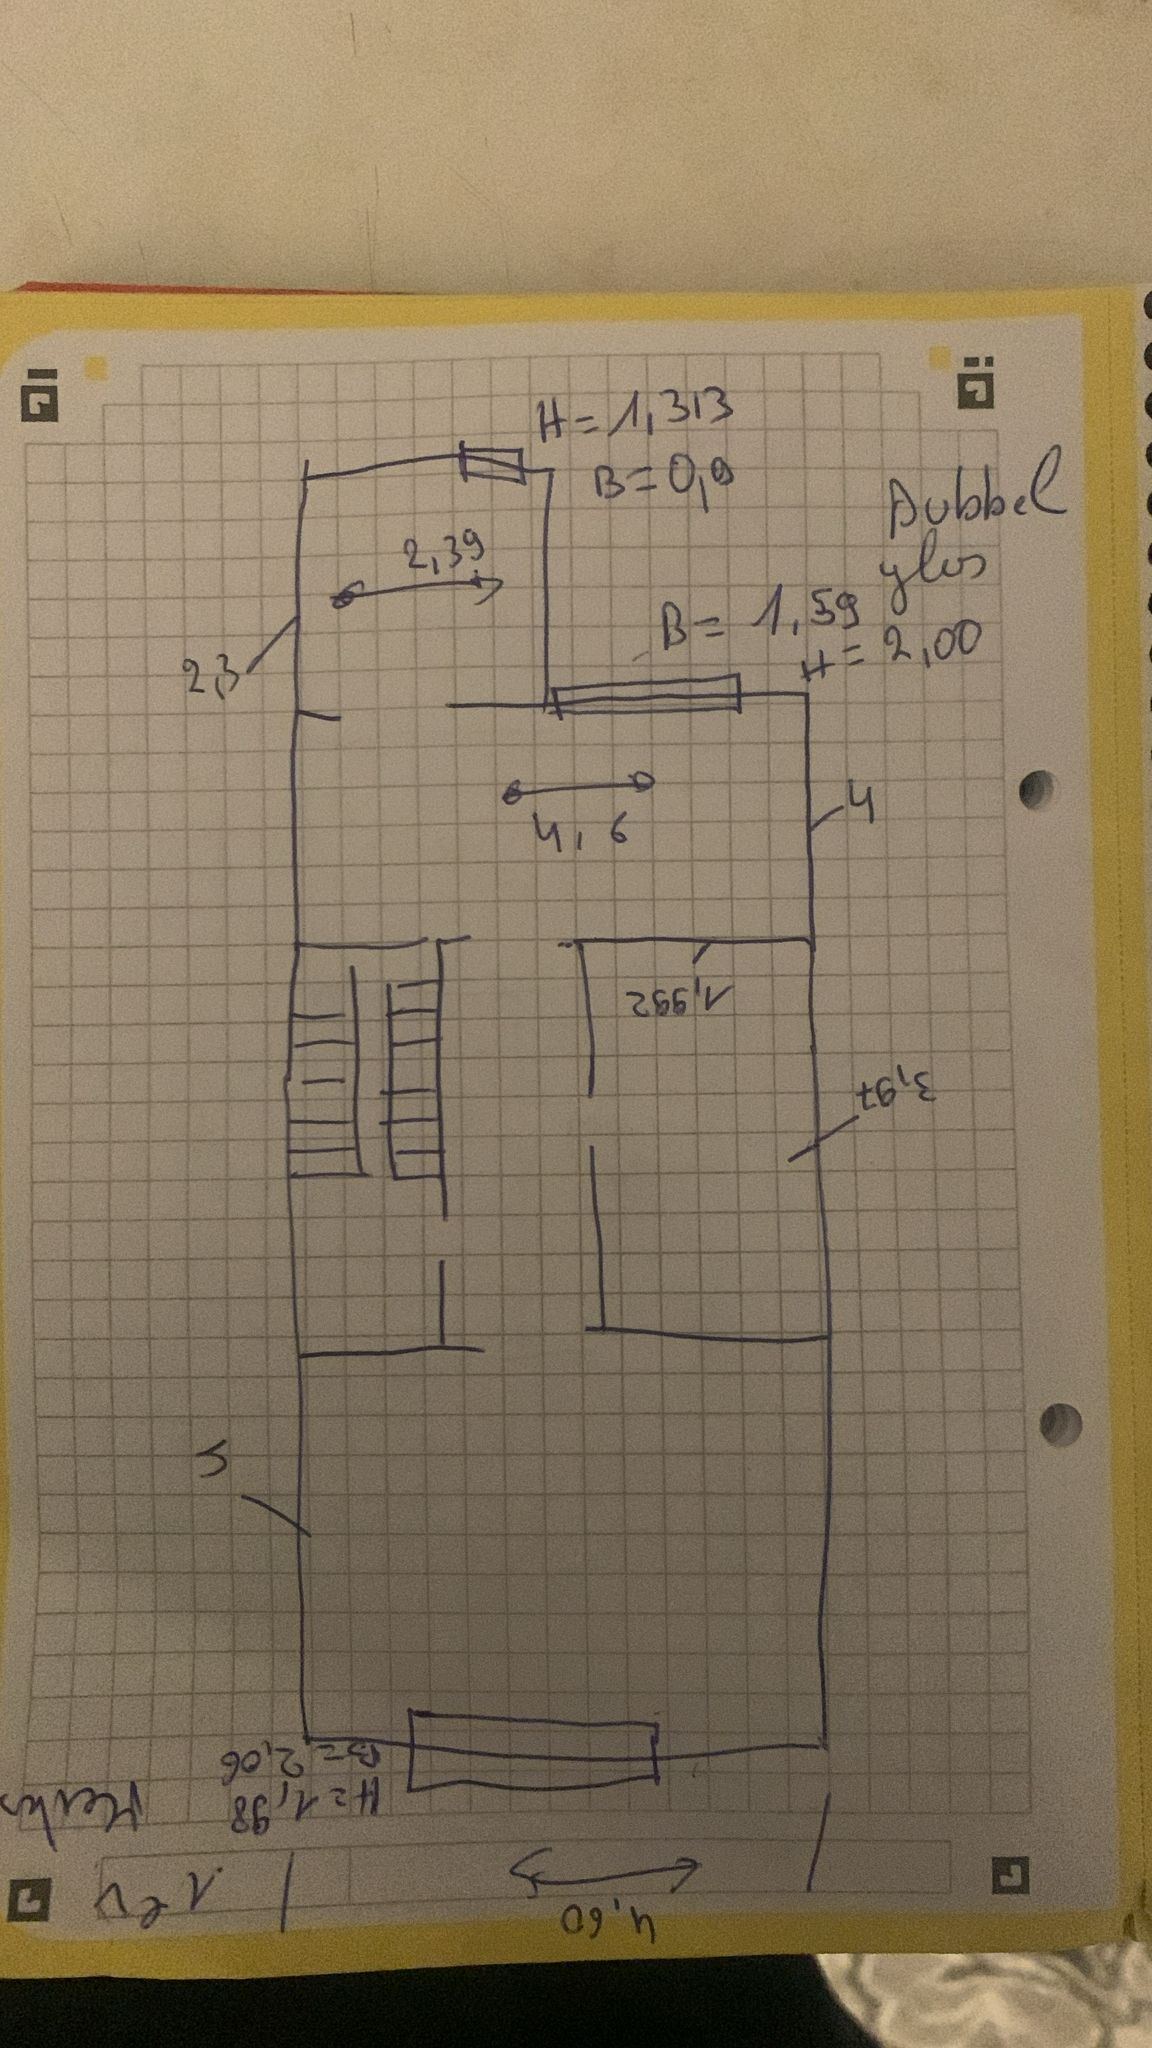 H=1,313
B=0,9
Dubbel
glas
2,39
B= 1,59
H= 2,00
2,3
4
4,6
1,992
3,97
5
B=2,06
H=1,98
1 ev
4,60